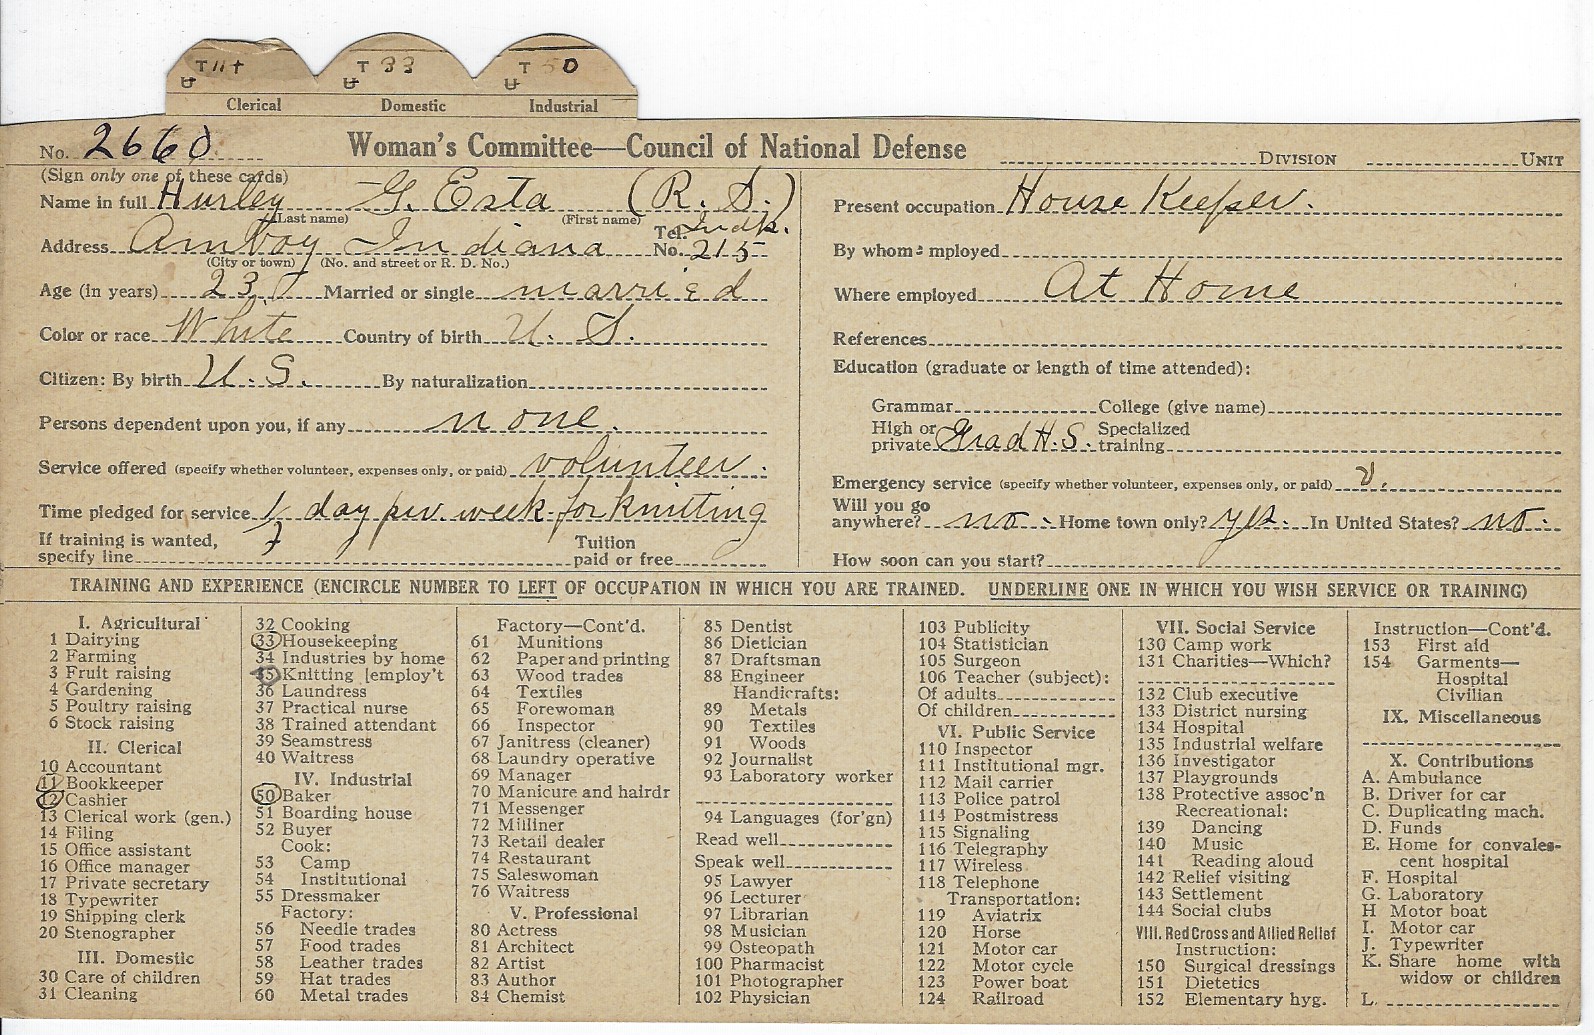 T 11+ T 33 T 50
Clerical Domestic Industrial
No. 2660 Woman's Committee—Council of National Defense DIVISION UNIT
(Sign only one of these cards)
Name in full Hurley G. Esta (R. S.)
(Last name) (First name)
Tel. Indp.
Address Amboy Indiana No. 215
(City or town) (No. and street or R. D. No.)
Age (in years) 23 Married or single married
Color or race White Country of birth U. S.
Citizen: By birth U. S. By naturalization
Persons dependent upon you, if any none.
Service offered (specify whether volunteer, expenses only, or paid) volunteer.
Time pledged for service 1/2 day per week for knitting
If training is wanted, Tuition
specify line paid or free
Present occupation House Keeper.
By whom employed
Where employed At Home
References
Education (graduate or length of time attended):
Grammar College (give name)
High or Specialized
private Grad H. S. training
Emergency service (specify whether volunteer, expenses only, or paid) v.
Will you go
anywhere? no. Home town only? yes. In United States? no.
How soon can you start?
TRAINING AND EXPERIENCE (ENCIRCLE NUMBER TO LEFT OF OCCUPATION IN WHICH YOU ARE TRAINED. UNDERLINE ONE IN WHICH YOU WISH SERVICE OR TRAINING)
I. Agricultural
1 Dairying
2 Farming
3 Fruit raising
4 Gardening
5 Poultry raising
6 Stock raising
II. Clerical
10 Accountant
11 Bookkeeper
12 Cashier
13 Clerical work (gen.)
14 Filing
15 Office assistant
16 Office manager
17 Private secretary
18 Typewriter
19 Shipping clerk
20 Stenographer
III. Domestic
30 Care of children
31 Cleaning
32 Cooking
33 Housekeeping
34 Industries by home
35 Knitting [employ't
36 Laundress
37 Practical nurse
38 Trained attendant
39 Seamstress
40 Waitress
IV. Industrial
50 Baker
51 Boarding house
52 Buyer
Cook:
53 Camp
54 Institutional
55 Dressmaker
Factory:
56 Needle trades
57 Food trades
58 Leather trades
59 Hat trades
60 Metal trades
Factory—Cont'd.
61 Munitions
62 Paper and printing
63 Wood trades
64 Textiles
65 Forewoman
66 Inspector
67 Janitress (cleaner)
68 Laundry operative
69 Manager
70 Manicure and hairdr
71 Messenger
72 Milliner
73 Retail dealer
74 Restaurant
75 Saleswoman
76 Waitress
V. Professional
80 Actress
81 Architect
82 Artist
83 Author
84 Chemist
85 Dentist
86 Dietician
87 Draftsman
88 Engineer
Handicrafts:
89 Metals
90 Textiles
91 Woods
92 Journalist
93 Laboratory worker
94 Languages (for'gn)
Read well
Speak well
95 Lawyer
96 Lecturer
97 Librarian
98 Musician
99 Osteopath
100 Pharmacist
101 Photographer
102 Physician
103 Publicity
104 Statistician
105 Surgeon
106 Teacher (subject):
Of adults
Of children
VI. Public Service
110 Inspector
111 Institutional mgr.
112 Mail carrier
113 Police patrol
114 Postmistress
115 Signaling
116 Telegraphy
117 Wireless
118 Telephone
Transportation:
119 Aviatrix
120 Horse
121 Motor car
122 Motor cycle
123 Power boat
124 Railroad
VII. Social Service
130 Camp work
131 Charities—Which?
132 Club executive
133 District nursing
134 Hospital
135 Industrial welfare
136 Investigator
137 Playgrounds
138 Protective assoc'n
Recreational:
139 Dancing
140 Music
141 Reading aloud
142 Relief visiting
143 Settlement
144 Social clubs
VIII. Red Cross and Allied Relief
Instruction:
150 Surgical dressings
151 Dietetics
152 Elementary hyg.
Instruction—Cont'd.
153 First aid
154 Garments—
Hospital
Civilian
IX. Miscellaneous
X. Contributions
A. Ambulance
B. Driver for car
C. Duplicating mach.
D. Funds
E. Home for convales-
cent hospital
F. Hospital
G. Laboratory
H Motor boat
I. Motor car
J. Typewriter
K. Share home with
widow or children
L.